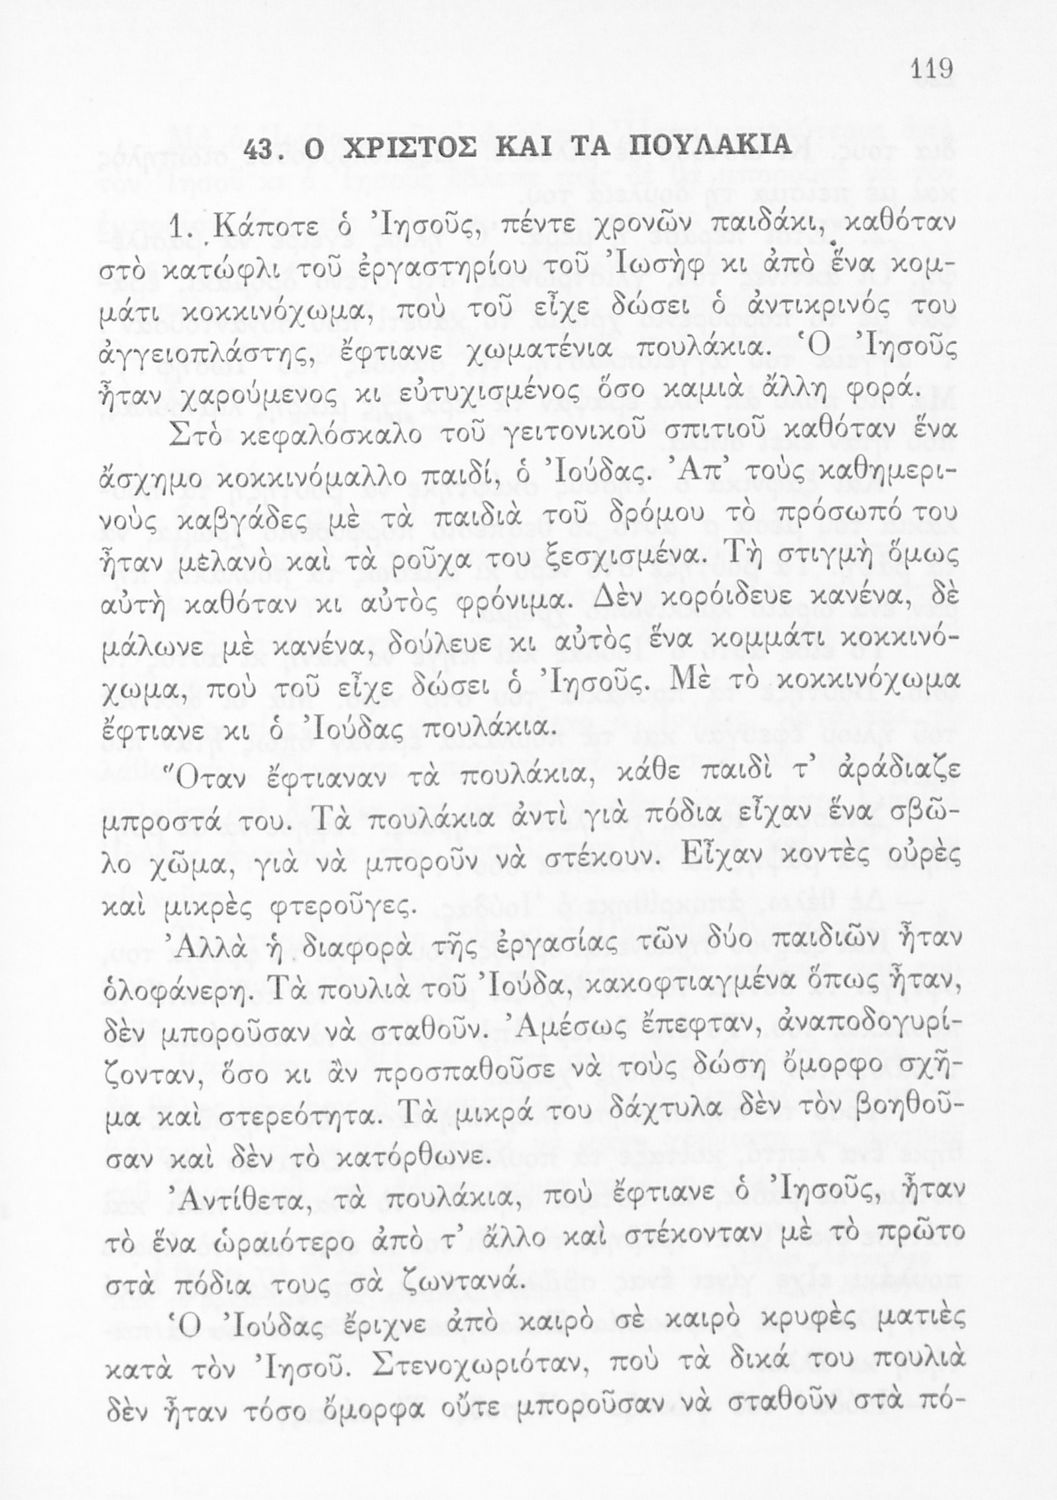 119
43. Ο ΧΡΙΣΤΟΣ ΚΑΙ ΤΑ ΠΟΥΛΑΚΙΑ
1. Κάποτε ὁ Ἰησοῦς, πέντε χρονῶν παιδάκι, καθόταν
στὸ κατώφλι τοῦ ἐργαστηρίου τοῦ Ἰωσὴφ κι ἀπὸ ἕνα κομ-
μάτι κοκκινόχωμα, ποὺ τοῦ εἶχε δώσει ὁ ἀντικρινός του
ἀγγειοπλάστης, ἔφτιανε χωματένια πουλάκια. Ὁ Ἰησοῦς
ἦταν χαρούμενος κι εὐτυχισμένος ὅσο καμιὰ ἄλλη φορά.
Στὸ κεφαλόσκαλο τοῦ γειτονικοῦ σπιτιοῦ καθόταν ἕνα
ἄσχημο κοκκινόμαλλο παιδί, ὁ Ἰούδας. Ἀπ’ τοὺς καθημερι-
νοὺς καβγάδες μὲ τὰ παιδιὰ τοῦ δρόμου τὸ πρόσωπό του
ἦταν μελανὸ καὶ τὰ ροῦχα του ξεσχισμένα. Τὴ στιγμὴ ὅμως
αὐτὴ καθόταν κι αὐτὸς φρόνιμα. Δὲν κορόιδευε κανένα, δὲ
μάλωνε μὲ κανένα, δούλευε κι αὐτὸς ἕνα κομμάτι κοκκινό-
χωμα, ποὺ τοῦ εἶχε δώσει ὁ Ἰησοῦς. Μὲ τὸ κοκκινόχωμα
ἔφτιανε κι ὁ Ἰούδας πουλάκια.
Ὅταν ἔφτιαναν τὰ πουλάκια, κάθε παιδὶ τ’ ἀράδιαζε
μπροστά του. Τὰ πουλάκια ἀντὶ γιὰ πόδια εἶχαν ἕνα σβῶ-
λο χῶμα, γιὰ νὰ μποροῦν νὰ στέκουν. Εἶχαν κοντὲς οὐρὲς
καὶ μικρὲς φτεροῦγες.
Ἀλλὰ ἡ διαφορὰ τῆς ἐργασίας τῶν δύο παιδιῶν ἦταν
ὁλοφάνερη. Τὰ πουλιὰ τοῦ Ἰούδα, κακοφτιαγμένα ὅπως ἦταν,
δὲν μποροῦσαν νὰ σταθοῦν. Ἀμέσως ἔπεφταν, ἀναποδογυρί-
ζονταν, ὅσο κι ἂν προσπαθοῦσε νὰ τοὺς δώση ὄμορφο σχῆ-
μα καὶ στερεότητα. Τὰ μικρά του δάχτυλα δὲν τὸν βοηθοῦ-
σαν καὶ δὲν τὸ κατόρθωνε.
Ἀντίθετα, τὰ πουλάκια, ποὺ ἔφτιανε ὁ Ἰησοῦς, ἦταν
τὸ ἕνα ὡραιότερο ἀπὸ τ’ ἄλλο καὶ στέκονταν μὲ τὸ πρῶτο
στὰ πόδια τους σὰ ζωντανά.
Ὁ Ἰούδας ἔριχνε ἀπὸ καιρὸ σὲ καιρὸ κρυφὲς ματιὲς
κατὰ τὸν Ἰησοῦ. Στενοχωριόταν, ποὺ τὰ δικά του πουλιὰ
δὲν ἦταν τόσο ὄμορφα οὔτε μποροῦσαν νὰ σταθοῦν στὰ πό-